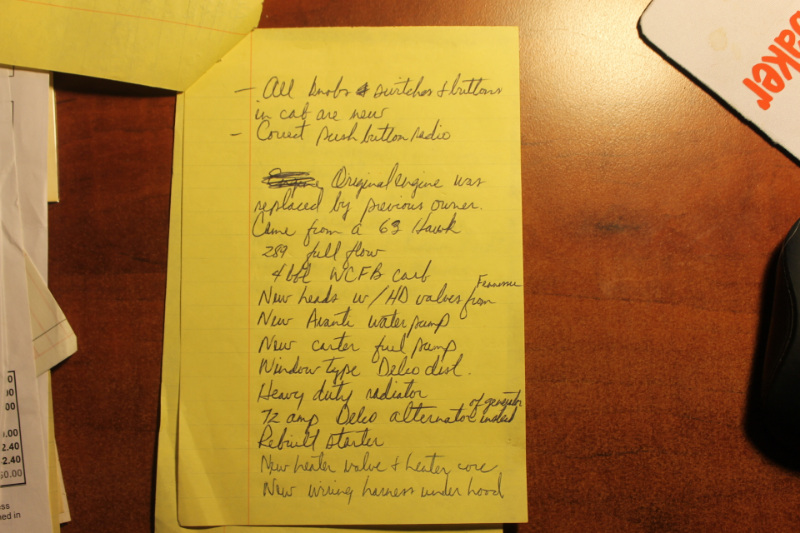 - All knobs & switches & buttons
in cab are new
- Correct push button radio
Original engine was
replaced by previous owner.
Came from a 63 Hawk
289 full flow
4 bbl WCFB carb
New heads w/HD valves from
New Avanti water pump
New carter fuel pump
Window type Delco dist.
Heavy duty radiator
72 amp Delco alternator instead of generator
Rebuilt starter
New heater valve & heater core
New wiring harness under hood
aker
0
00
0
0
1.00
2.40
2.40
0.00
ss
ned in